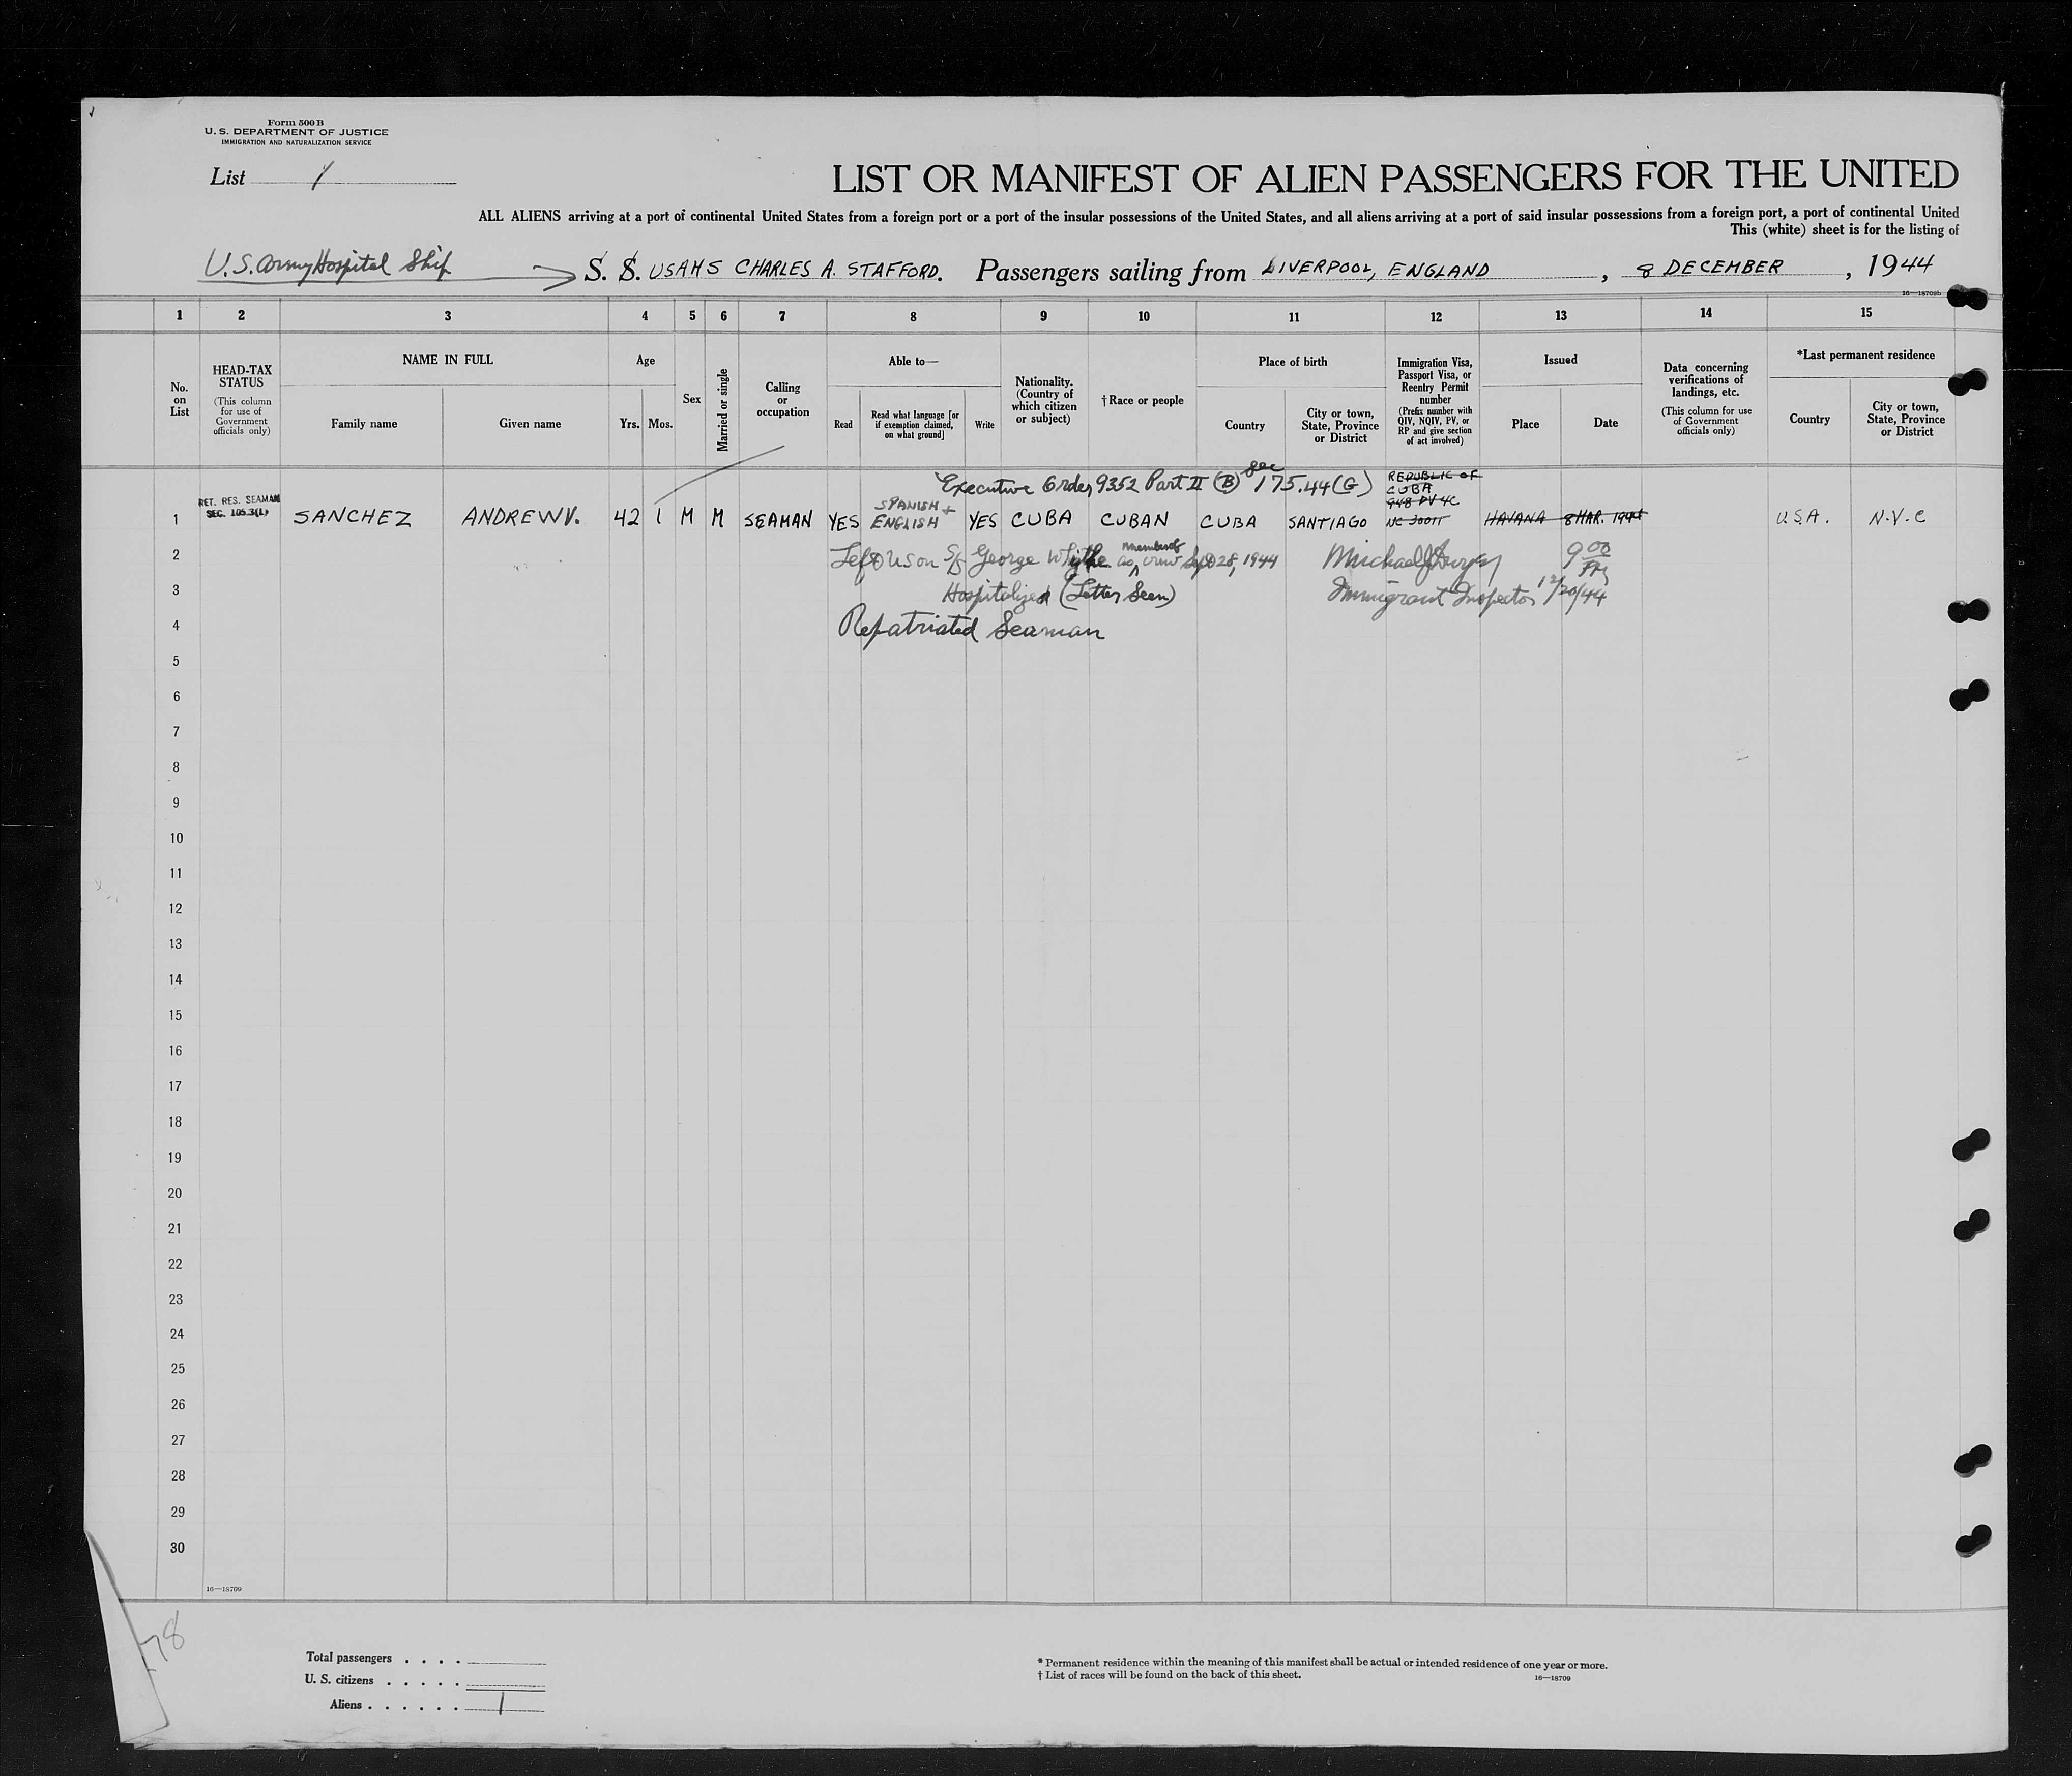 Form 500 B
U. S. DEPARTMENT OF JUSTICE
IMMIGRATION AND NATURALIZATION SERVICE
List 1
LIST OR MANIFEST OF ALIEN PASSENGERS FOR THE UNITED
ALL ALIENS arriving at a port of continental United States from a foreign port or a port of the insular possessions of the United States, and all aliens arriving at a port of said insular possessions from a foreign port, a port of continental United
This (white) sheet is for the listing of
U.S. Army Hospital Ship S. S. USAHS CHARLES A. STAFFORD. Passengers sailing from LIVERPOOL, ENGLAND, 8 DECEMBER, 1944
16—18709b
1 2 3 4 5 6 7 8 9 10 11 12 13 14 15
No. on List
HEAD-TAX STATUS
(This column for use of Government officials only)
NAME IN FULL
Family name
Given name
Age
Yrs.
Mos.
Sex
Married or single
Calling or occupation
Able to—
Read
Read what language [or if exemption claimed, on what ground]
Write
Nationality. (Country of which citizen or subject)
† Race or people
Place of birth
Country
City or town, State, Province or District
Immigration Visa, Passport Visa, or Reentry Permit number
(Prefix number with QIV, NQIV, PV, or RP and give section of act involved)
Issued
Place
Date
Data concerning verifications of landings, etc.
(This column for use of Government officials only)
*Last permanent residence
Country
City or town, State, Province or District
Executive Order 9352 Part II (B) Sec 175.44 (G)
REPUBLIC OF
CUBA
948 PV 4C
RET. RES. SEAMAN
SEC. 105.3(L)
1 SANCHEZ ANDREW V. 42 1 M M SEAMAN YES SPANISH + ENGLISH YES CUBA CUBAN CUBA SANTIAGO HAVANA 8 MAR. 1944 U.S.A. N.Y.C
2 Left US on S/S George Wythe as member of crew Sept 28, 1944 Michael J Dwyer 9 00 PM
3 Hospitalized (Letter Seen) Immigrant Inspector 12/20/44
4 Repatriated Seaman
5
6
7
8
9
10
11
12
13
14
15
16
17
18
19
20
21
22
23
24
25
26
27
28
29
30
16—18709
78
Total passengers . . . .
U. S. citizens . . . . .
Aliens . . . . . . 1
* Permanent residence within the meaning of this manifest shall be actual or intended residence of one year or more.
† List of races will be found on the back of this sheet.
16—18709